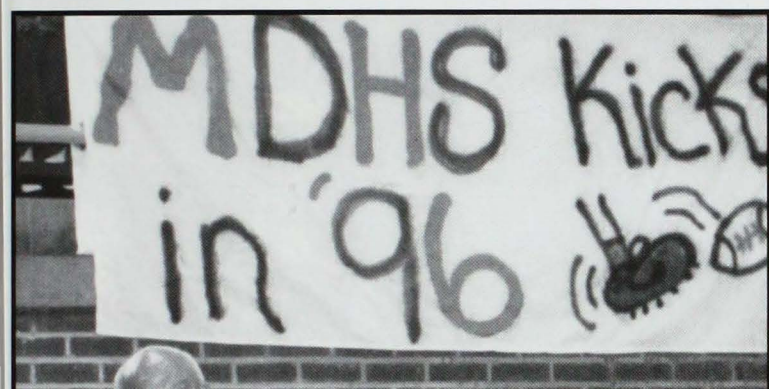 MDHS Kicks
in '96